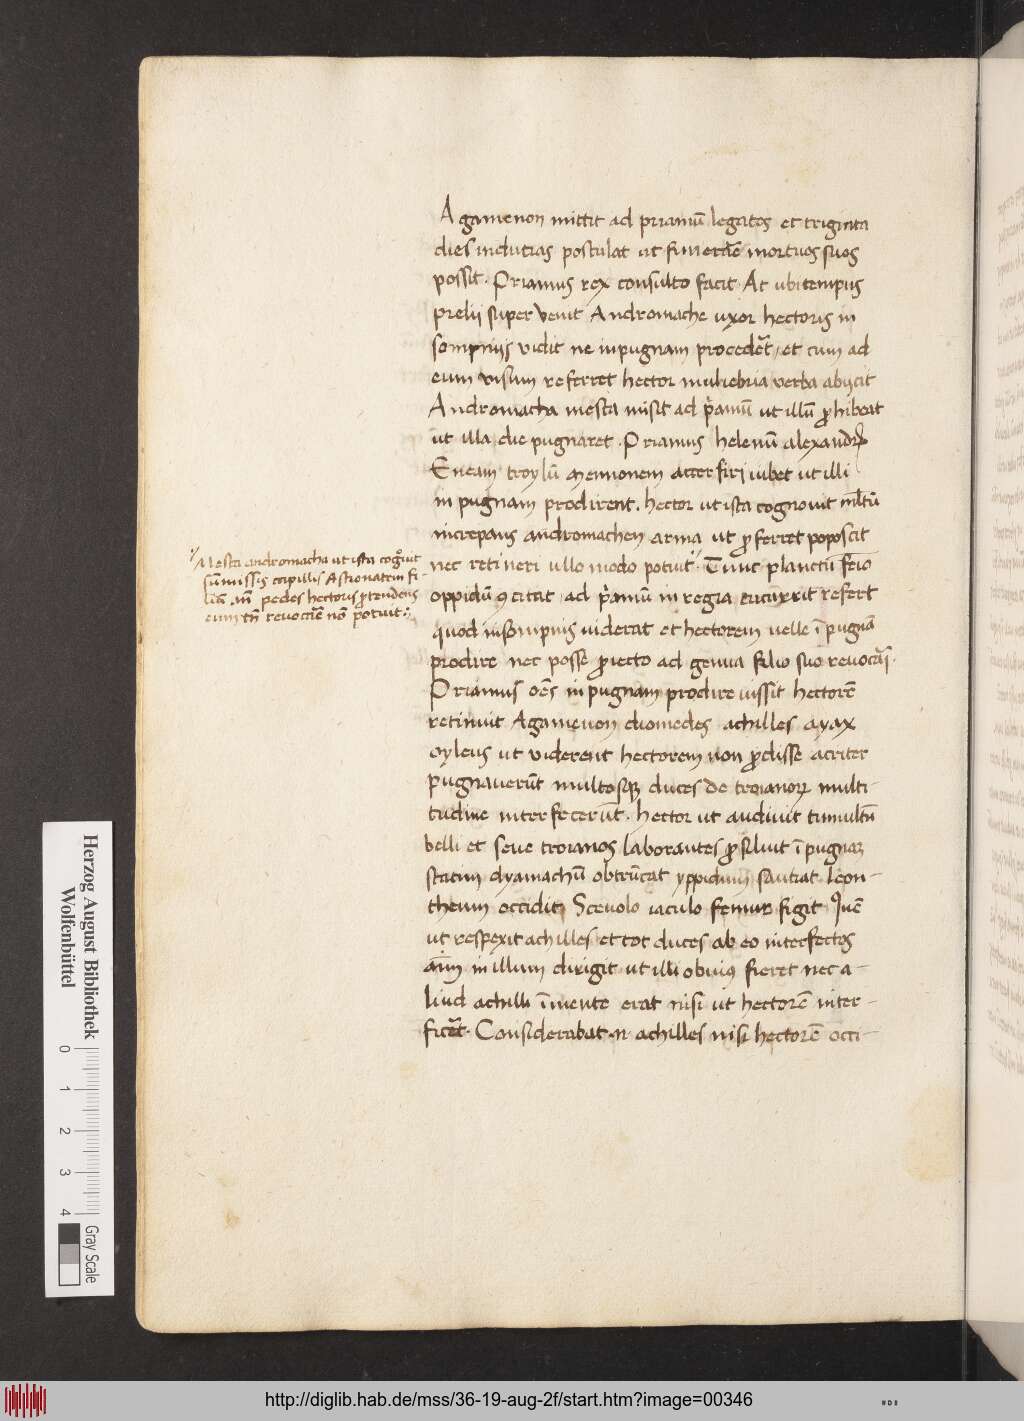 Agamenon mittit ad priamū legatos et triginta
dies inducias postulat ut funerāe mortuos suos
possit. Priamus rex consulto facit. At ubi tempus
prelii super venit Andromache uxor hectoris in
sompniis vidit ne in pugnam procedēt, et cum ad
eum visum referret hector muliebria verba abijcit
Andromacha mesta misit ad p̄amū ut illū ꝓhibeat
ut illa die pugnaret. Priamus helenū alexandꝝ
Eneam troylū Mennonem accersiri iubet ut illi
in pugnam prodirent. hector ut ista cognovit mltū
increpans andromachen arma ut ꝓferret poposcit
nec retineri ullo modo potuit. Tunc planctu
oppidū ꝯcitat, ad p̄amū in regia cucurrit refert
quod insompnis viderat et hectorem uelle ī pugnā
prodire nec posse ꝓiecto ad genua filio suo
Priamus oēs in pugnam prodire iussit hectorē
retinuit Agamenon diomedes achilles ayax
oyleus ut viderent hectorem non ꝓdisse acriter
pugnaverūt multosqꝫ duces de troianoꝝ multi-
tudine interfecerūt. hector ut audivit tumultū
belli et seve troianos laborantes ꝓsiluit ī pugnaꝫ
statim dyamachū obtrūcat yppidum sautiat leon-
theum occidit Scevolo iaculo femur figit Quē
ut respexit achilles et tot duces ab eo interfectos
āīm in illum dirigit ut illi obviꝰ fieret nec a-
liud achilli ī mente erat nisi ut hectorē inter-
ficēt. Considerabat .n. achilles nisi hectorē occi-
Mesta andromacha ut ista cogͦuit
sūmissis capillis Astionactem fi-
liū .an̄ pedes hectoris ꝓtendens
eum tn̄ revocāe nō potuit
Herzog August Bibliothek
Wolfenbüttel
0 1 2 3 4
Gray Scale
http://diglib.hab.de/mss/36-19-aug-2f/start.htm?image=00346